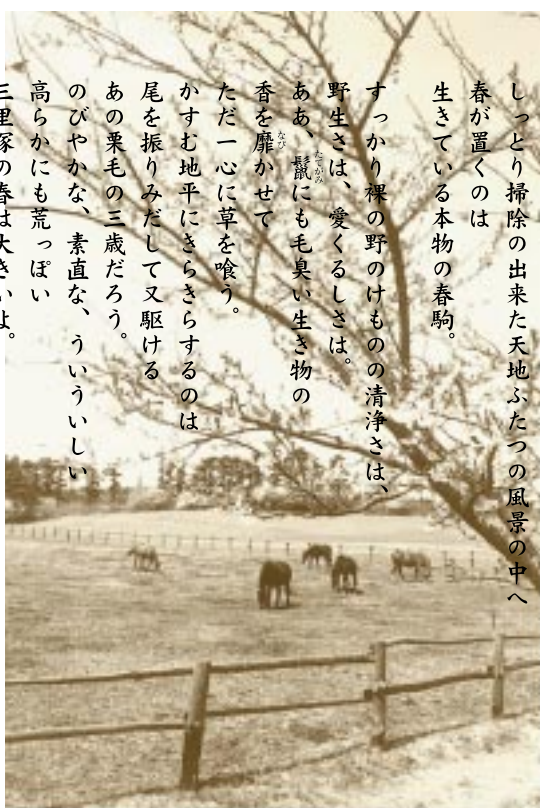 しっとり掃除の出来た天地ふたつの風景の中へ
春が置くのは
生きている本物の春駒。
すっかり裸の野のけものの清浄さは、
野生さは、愛くるしさは。
ああ、鬣にも毛臭い生き物の
たてがみ
香を靡かせて
なび
ただ一心に草を喰う。
かすむ地平にきらきらするのは
尾を振りみだして又駆ける
あの栗毛の三歳だろう。
のびやかな、素直な、ういういしい
高らかにも荒っぽい
三里塚の春は大きいよ。